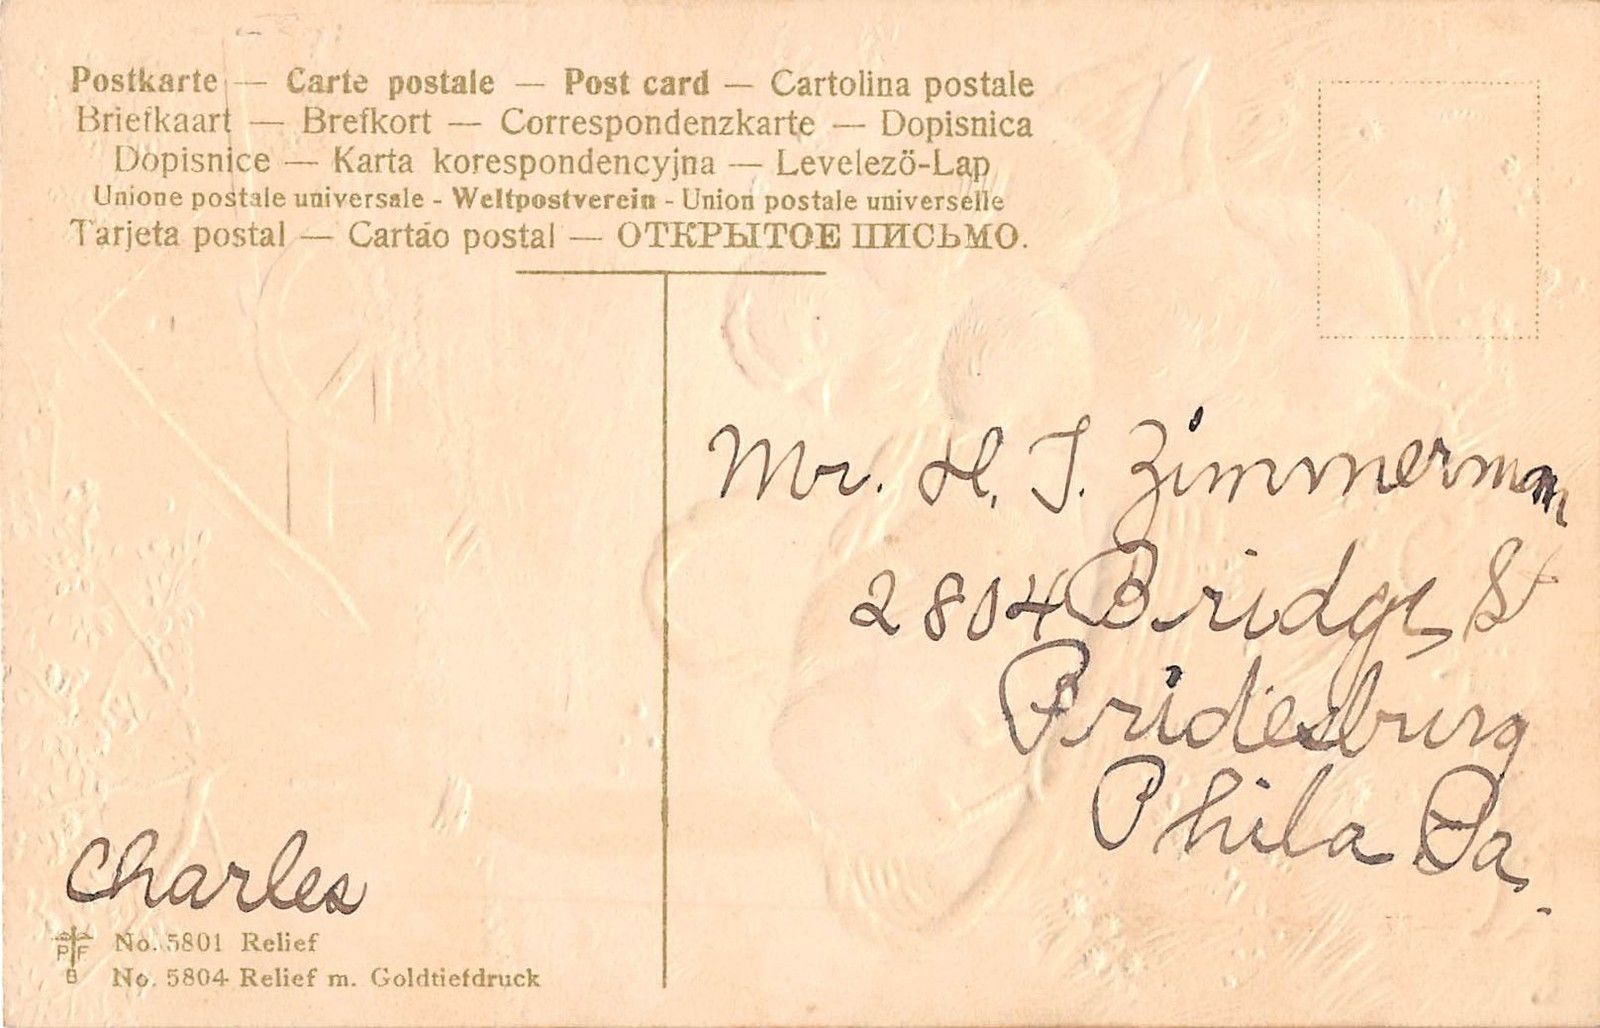 Postkarte — Carte postale — Post card — Cartolina postale
Briefkaart — Brefkort — Correspondenzkarte — Dopisnica
Dopisnice — Karta korespondencyjna — Levelező-Lap
Unione postale universale - Weltpostverein - Union postale universelle
Tarjeta postal — Cartão postal — ОТКРЫТОЕ ПИСЬМО.
Mr. H. J. Zimmerman
2804 Bridge St
Bridesburg
Phila Pa.
Charles
P F
B
No. 5801 Relief
No. 5804 Relief m. Goldtiefdruck